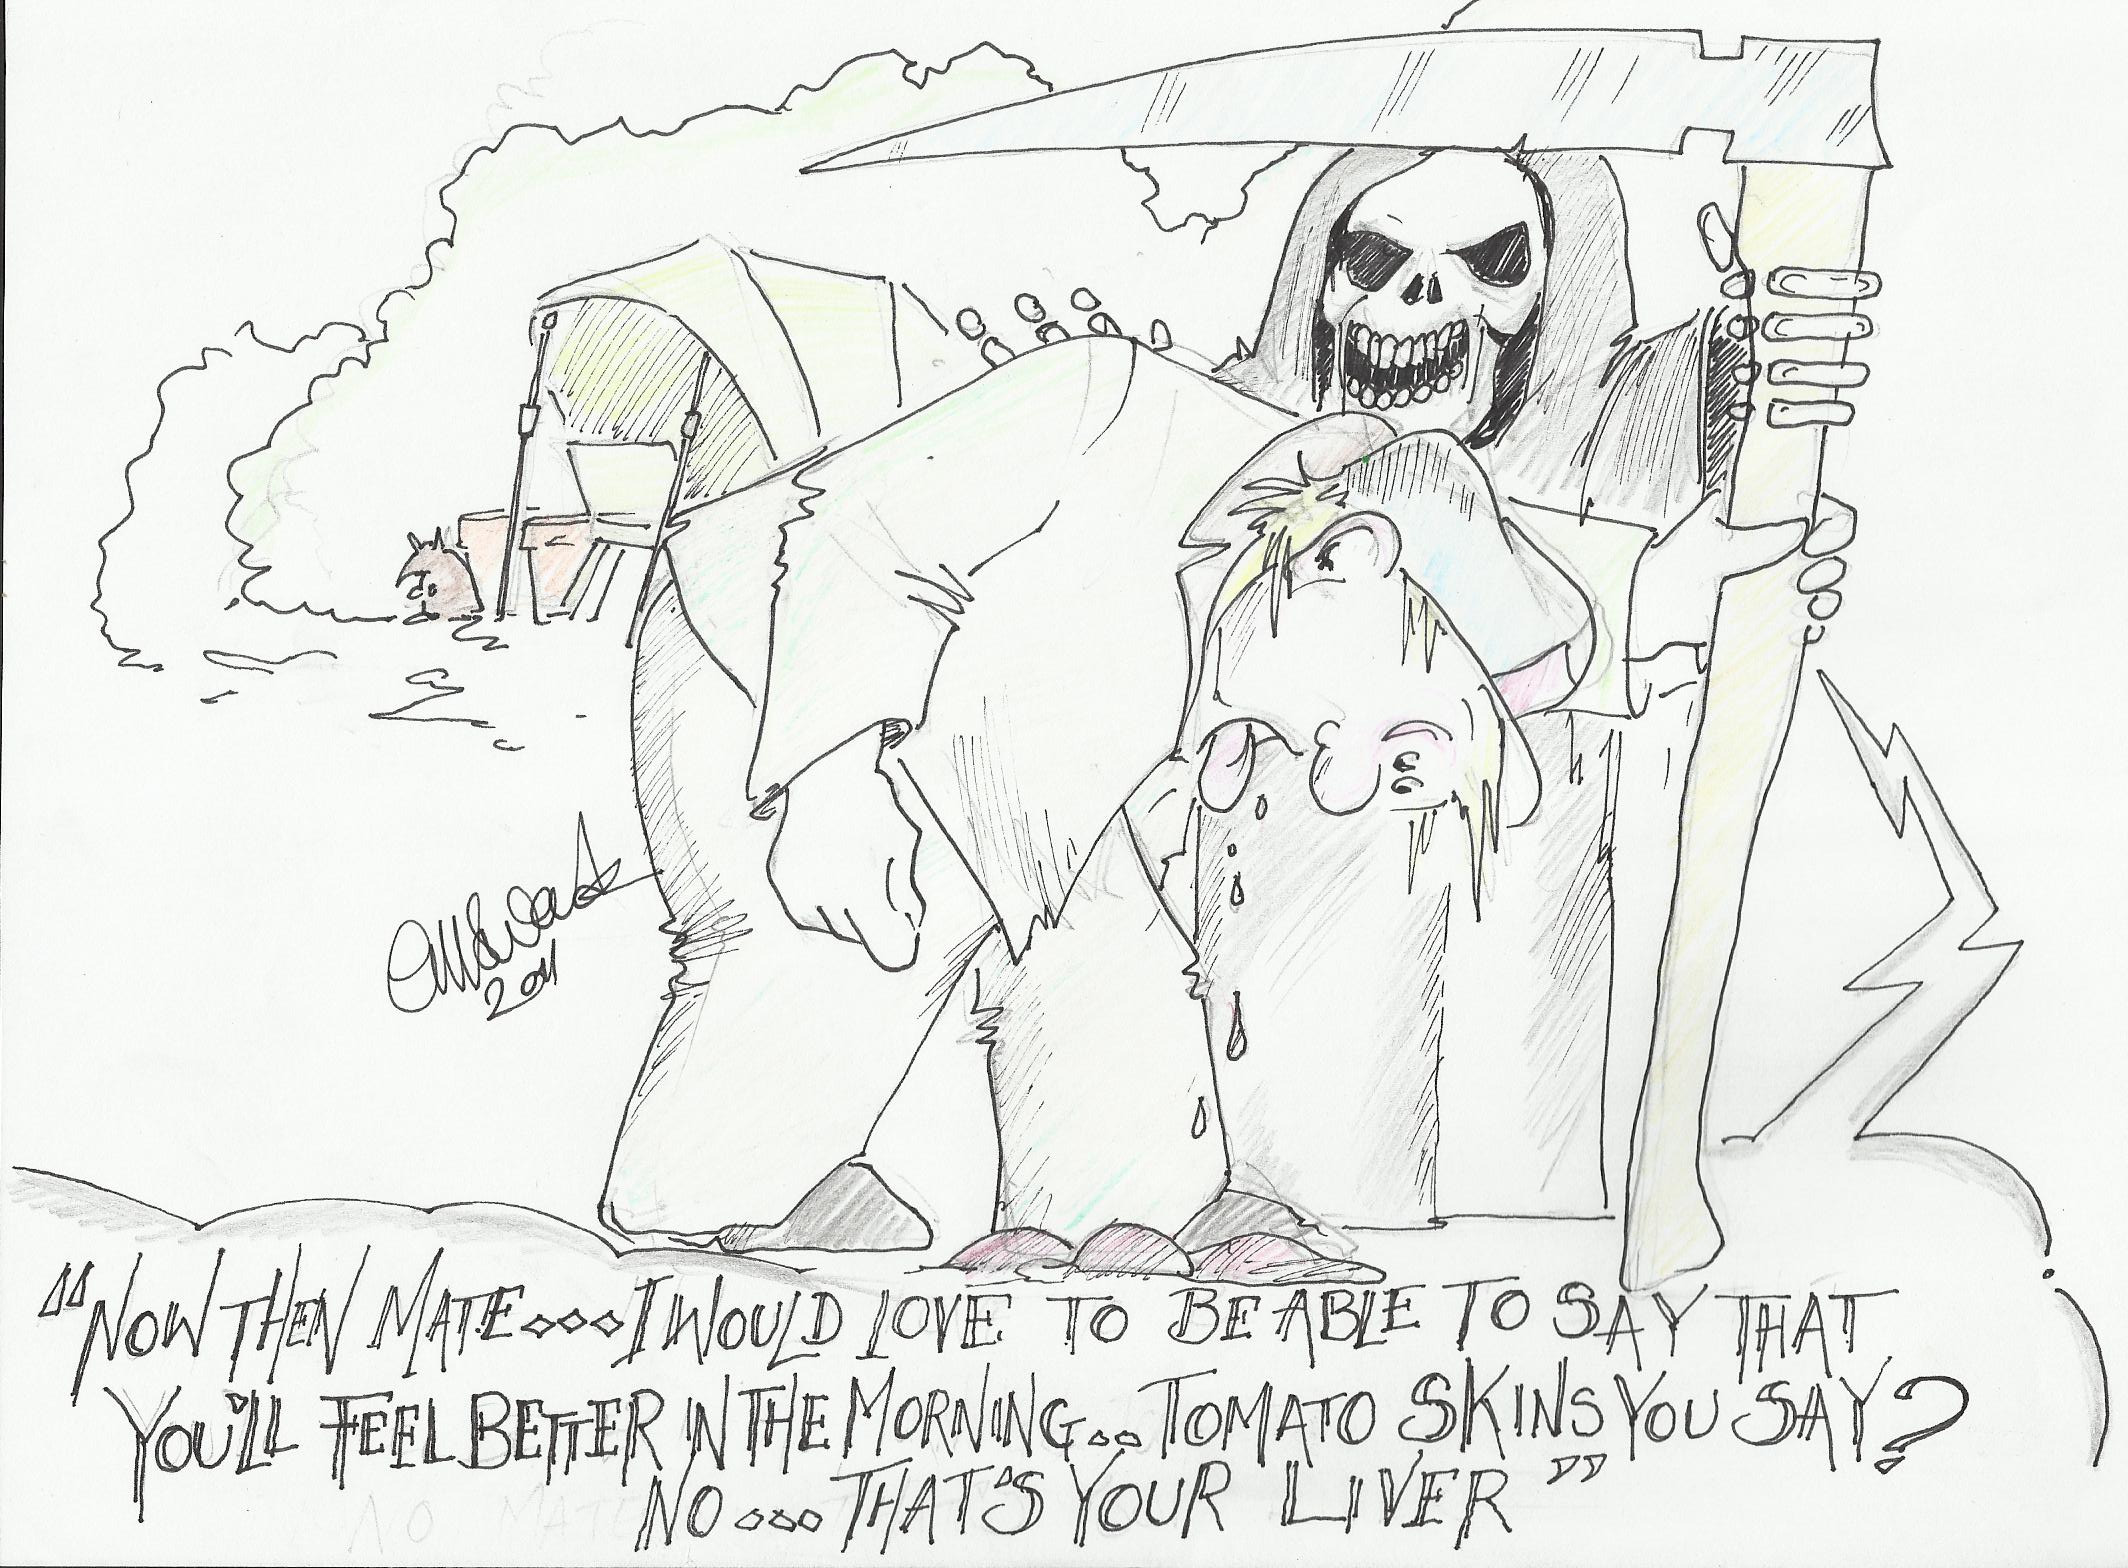 2011
"NOW THEN MATE...I WOULD LOVE TO BE ABLE TO SAY THAT
YOU'LL FEEL BETTER IN THE MORNING..TOMATO SKINS YOU SAY?
NO...THAT'S YOUR LIVER"
NO MATE